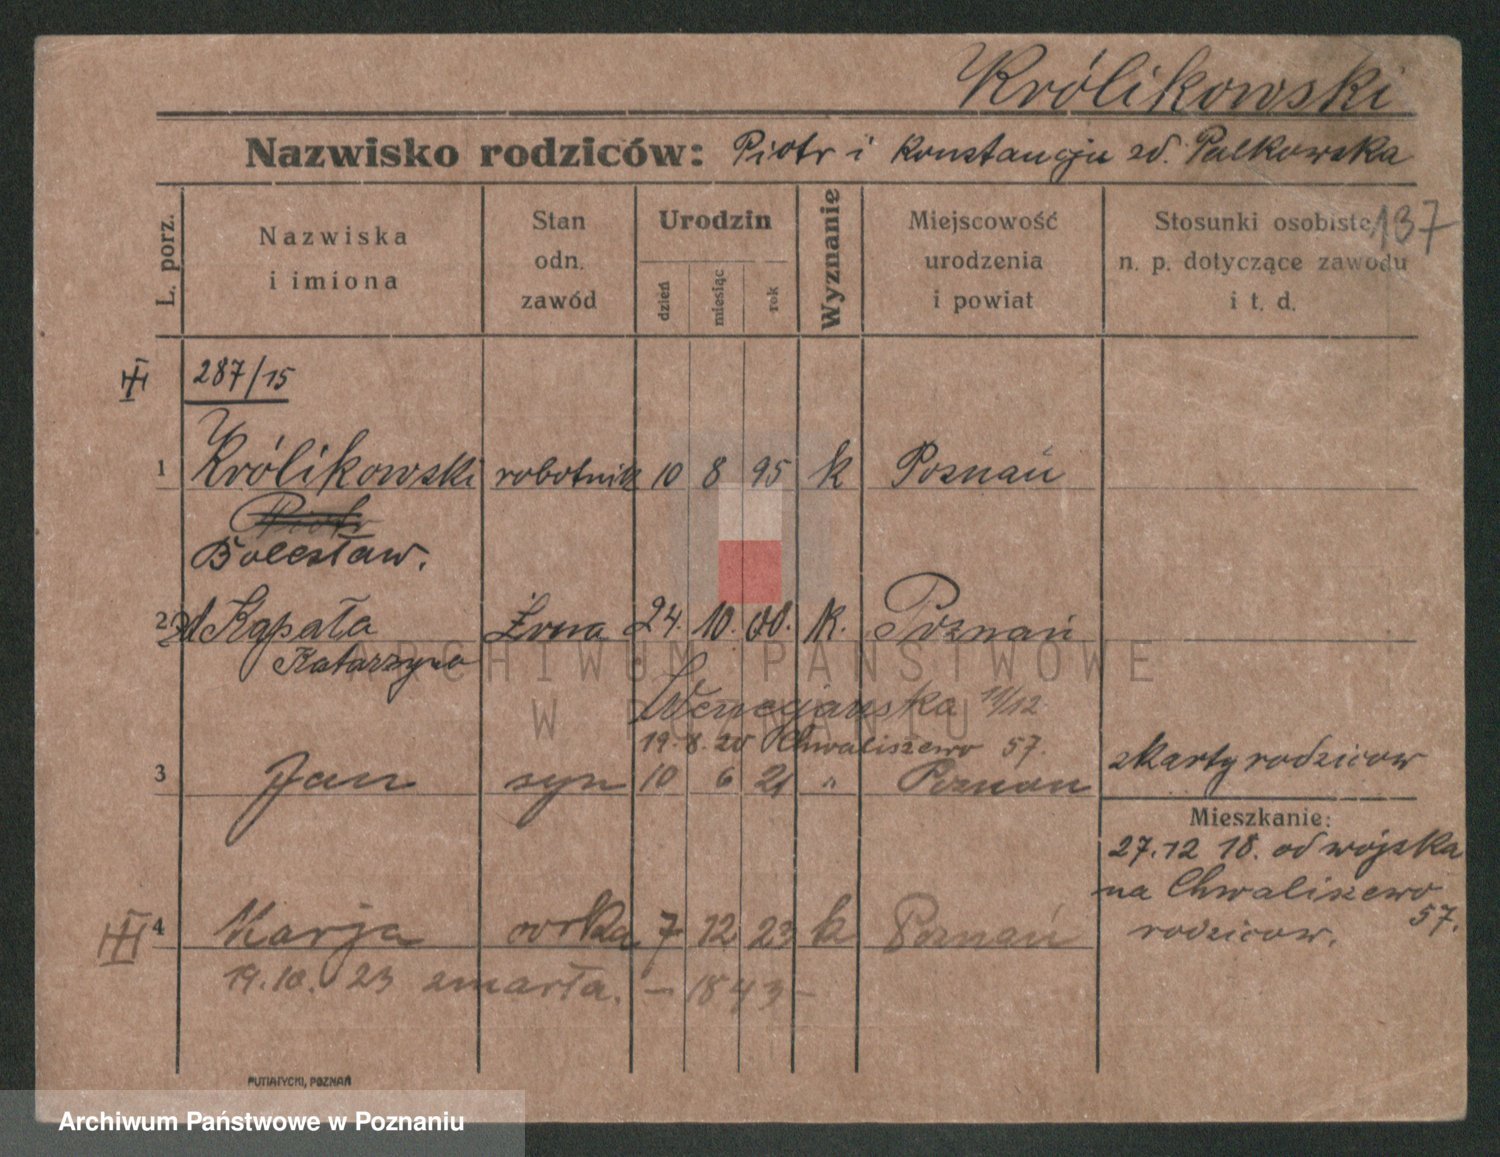 Królikowski
Nazwisko rodziców: Piotr i Konstancja zd. Palkowska
137
L. porz.
Nazwiska
i imiona
Stan
odn.
zawód
Urodzin
dzień
miesiąc
rok
Wyznanie
Miejscowość
urodzenia
i powiat
Stosunki osobiste
n. p. dotyczące zawodu
i t. d.
287/15
1 Królikowski robotnik 10 8 95 k Poznań
Piotr
Bolesław.
2 Kąpała Żona 24. 10. 00. k. Poznań
Katarzyna
Wenecjańska 11/12
19. 8. 20 Chwaliszewo 57.
3 Jan syn 10 6 21 " Poznan
z karty rodzicow
Mieszkanie:
27.12 18. od wojska
na Chwaliszewo
57.
rodzicow.
4 Marja corka 7 12 23 k Poznań
19.10. 23 zmarła. – 1843 –
PUTIATYCKI, POZNAŃ
ARCHIWUM PAŃSTWOWE
W POZNANIU
Archiwum Państwowe w Poznaniu